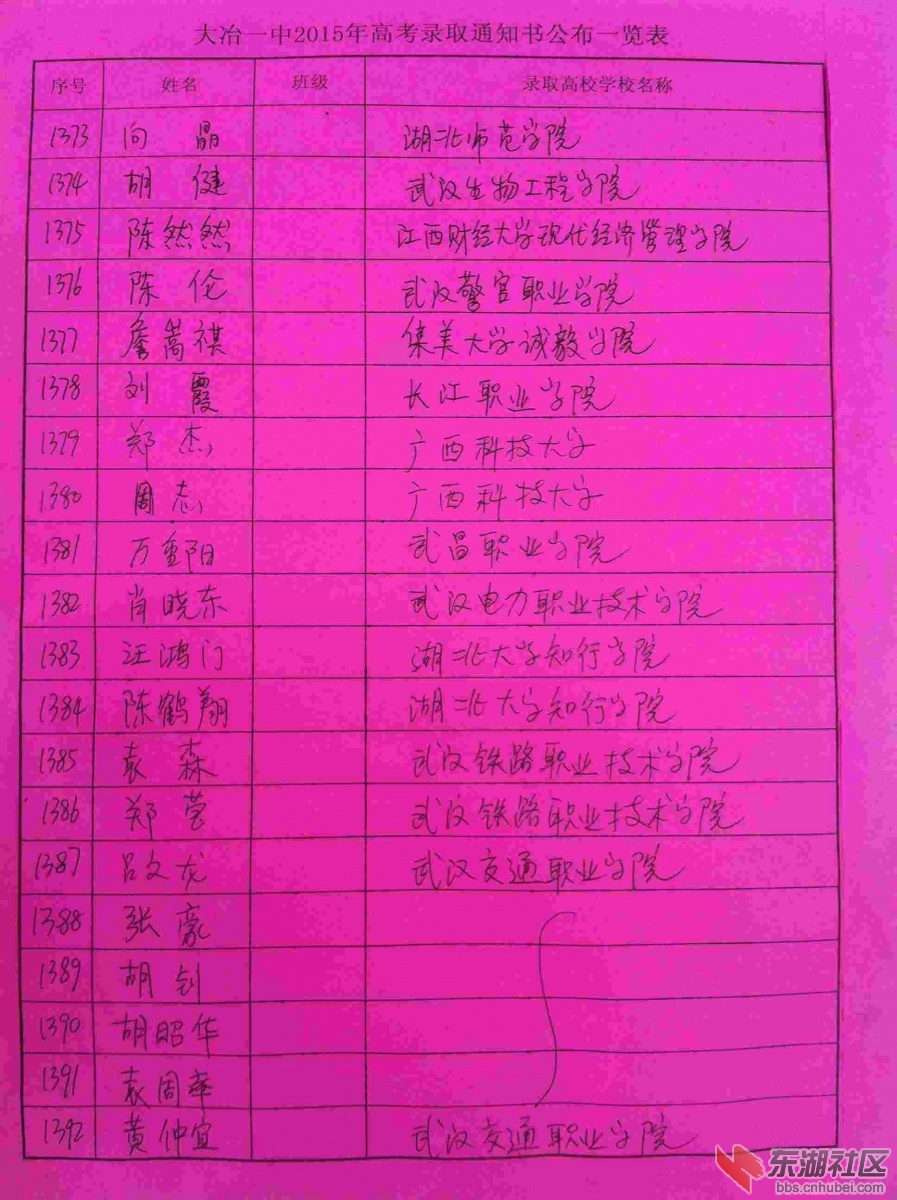 大冶一中2015年高考录取通知书公布一览表
序号 姓名 班级 录取高校学校名称
1373 向晶 湖北师范学院
1374 胡健 武汉生物工程学院
1375 陈然然 江西财经大学现代经济管理学院
1376 陈伦 武汉警官职业学院
1377 詹嵩祺 集美大学诚毅学院
1378 刘霞 长江职业学院
1379 郑杰 广西科技大学
1380 周志 广西科技大学
1381 万重阳 武昌职业学院
1382 肖晓东 武汉电力职业技术学院
1383 汪鸿门 湖北大学知行学院
1384 陈鹤翔 湖北大学知行学院
1385 袁森 武汉铁路职业技术学院
1386 郑莹 武汉铁路职业技术学院
1387 吕文龙 武汉交通职业学院
1388 张豪
1389 胡钊
1390 胡昭华
1391 袁周率
1392 黄仲宜 武汉交通职业学院
东湖社区
bbs.cnhubei.com